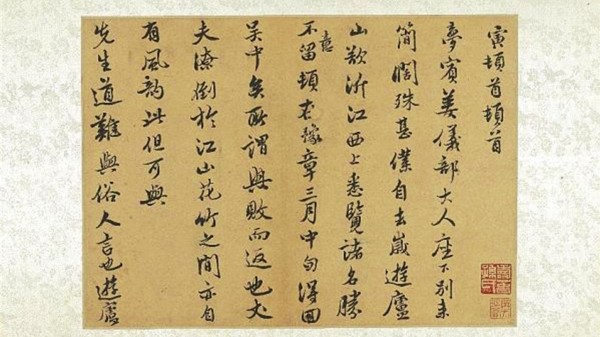 寅頓首頓首
夢賓姜儀部大人座下別來
簡闊殊甚僕自去歲遊廬
山欲泝江西上悉覽諸名勝
不意留頓豫章三月中旬得回
吳中矣所謂興敗而返也丈
夫潦倒於江山花竹之間亦自
有風韻此但可與
先生道難與俗人言也遊廬